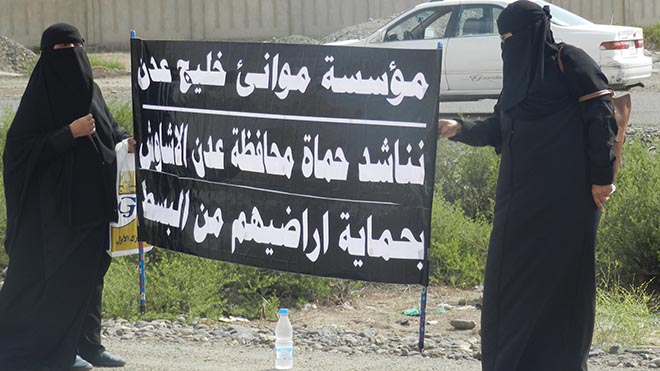 مؤسسة موانئ خليج عدن
نناشد حماة محافظة عدن الاشاوش
بحماية اراضيهم من البسط